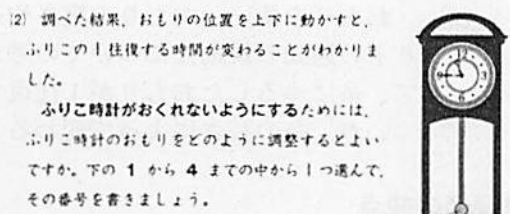 (2) 調べた結果、おもりの位置を上下に動かすと、
ふりこの1往復する時間が変わることがわかりま
した。
ふりこ時計がおくれないようにするためには、
ふりこ時計のおもりをどのように調整するとよい
ですか。下の 1 から 4 までの中から1つ選んで、
その番号を書きましょう。
12
3
6
9